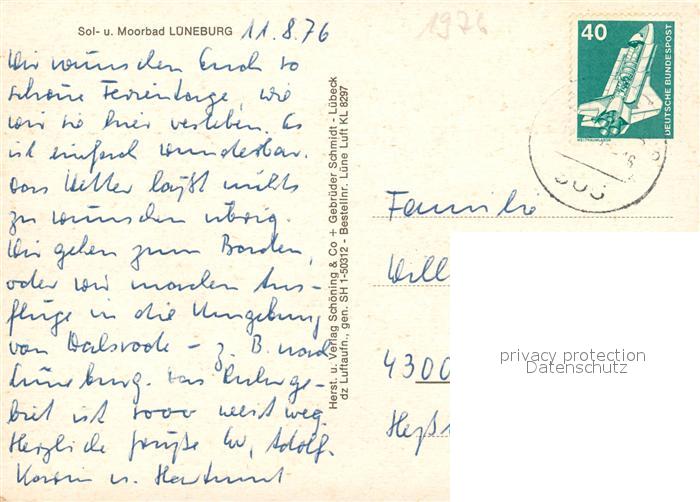 Sol- u. Moorbad LÜNEBURG 11.8.76
1976
Wir wünschen Euch so
schöne Ferientage, wie
wir sie hier verleben. Es
ist einfach wunderbar.
Das Wetter läßt nichts
zu wünschen übrig.
Wir gehen zum Baden,
oder wir machen Aus-
flüge in die Umgebung
von Walsrode - z. B. nach
Lüneburg. Das Ruhrge-
biet ist sooo weit weg.
Herzliche Grüße Ev, Adolf,
Karin u. Hartmut
Herst. u. Verlag Schöning & Co + Gebrüder Schmidt - Lübeck
dz Luftaufn., gen. SH 1-50312 - Bestellnr. Lüne Luft KL 8297
40
DEUTSCHE BUNDESPOST
WELTRAUMLABOR
303
Familie
Will
4300
Heß
privacy protection
Datenschutz